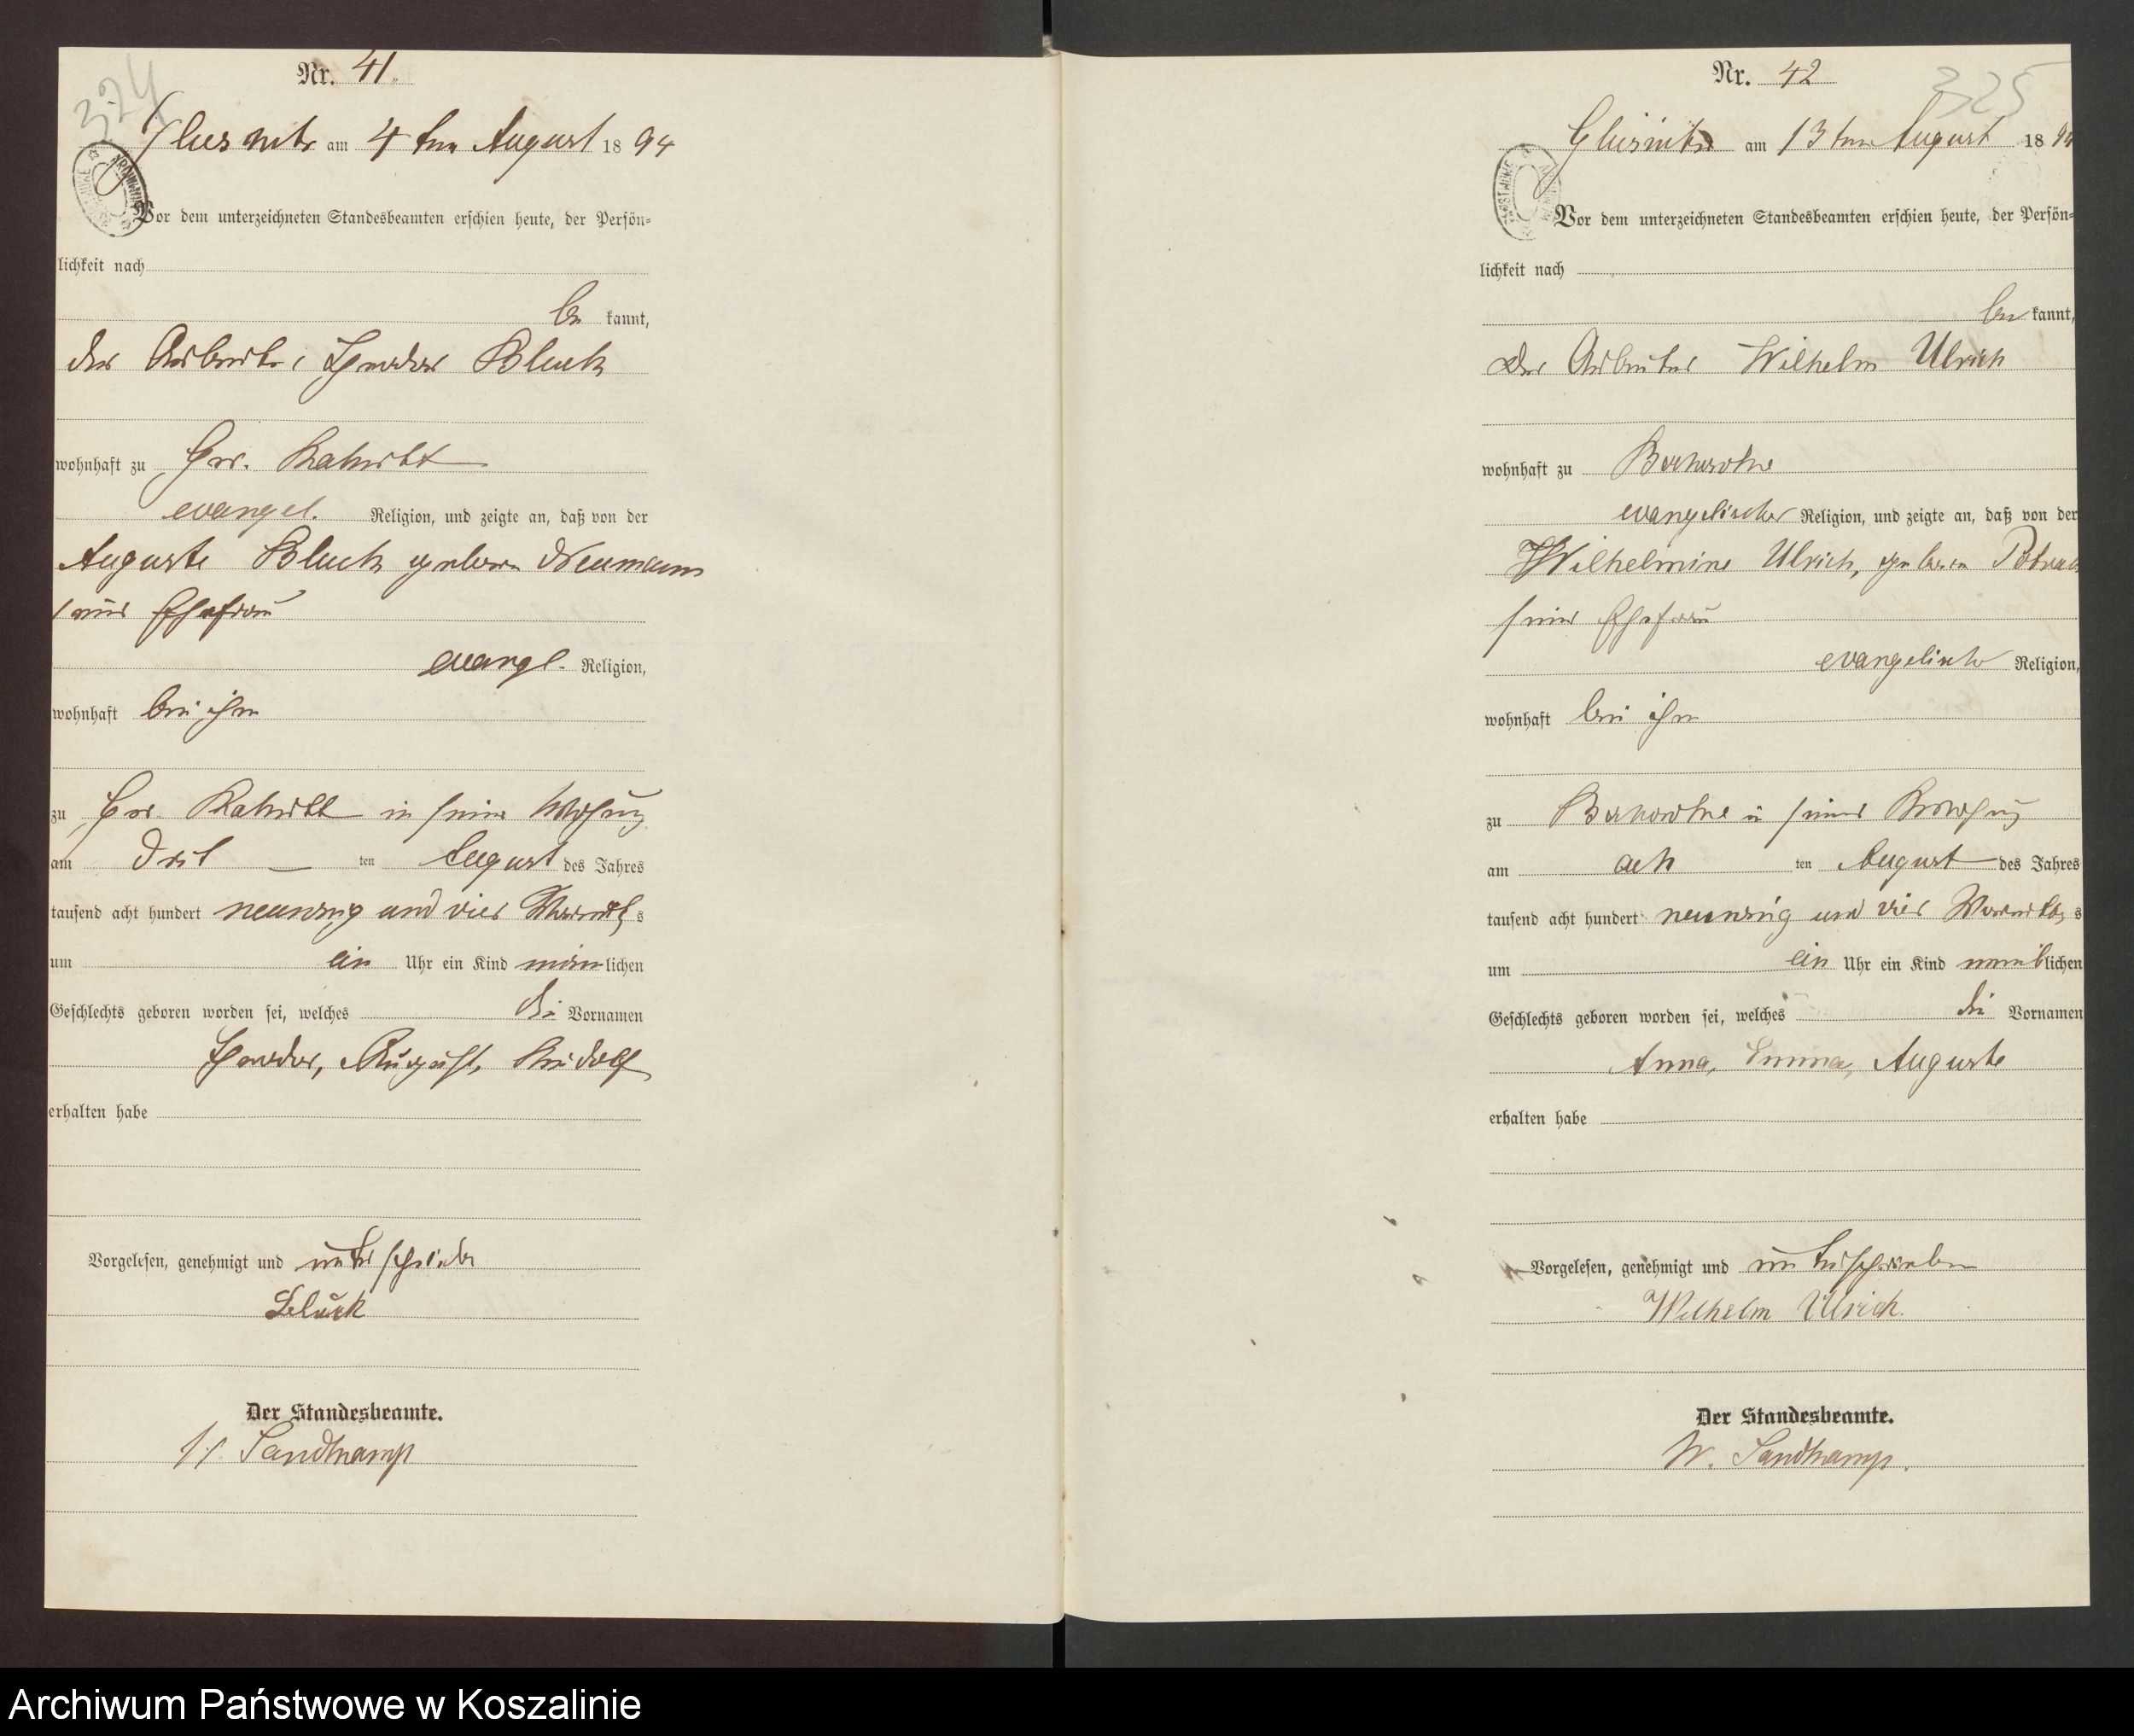 324
Nr. 41.
Glesnitz am 4 ten August 1894
Vor dem unterzeichneten Standesbeamten erschien heute, der Persön=
lichkeit nach
be kannt,
der Arbeiter Theodor Bluck
wohnhaft zu Gr.
evangel. Religion, und zeigte an, daß von der
Auguste Bluck geborn Neumann
seine Ehefrau
evangl. Religion,
wohnhaft bei ihm
zu Gr. in seiner Wohnung
am drit ten August des Jahres
tausend acht hundert neunzig und vier Vormittags
um ein Uhr ein Kind männlichen
Geschlechts geboren worden sei, welches die Vornamen
Theodor, August, Rudolf
erhalten habe
Vorgelesen, genehmigt und unterschrieben
Bluck
Der Standesbeamte.
W. Sandkamp
325
Nr. 42
Glesnitz am 13 ten August 1894
Vor dem unterzeichneten Standesbeamten erschien heute, der Persön=
lichkeit nach
be kannt,
Der Arbeiter Wilhelm Ulrich
wohnhaft zu
evangelischer Religion, und zeigte an, daß von der
Wilhelmine Ulrich, geboren
seiner Ehefrau
evangelischer Religion,
wohnhaft bei ihm
zu in seiner Wohnung
am ach ten August des Jahres
tausend acht hundert neunzig und vier Vormittags
um ein Uhr ein Kind weiblichen
Geschlechts geboren worden sei, welches die Vornamen
Anna, Emma, Auguste
erhalten habe
Vorgelesen, genehmigt und unterschrieben
Wilhelm Ulrich.
Der Standesbeamte.
W. Sandkamp.
Archiwum Państwowe w Koszalinie